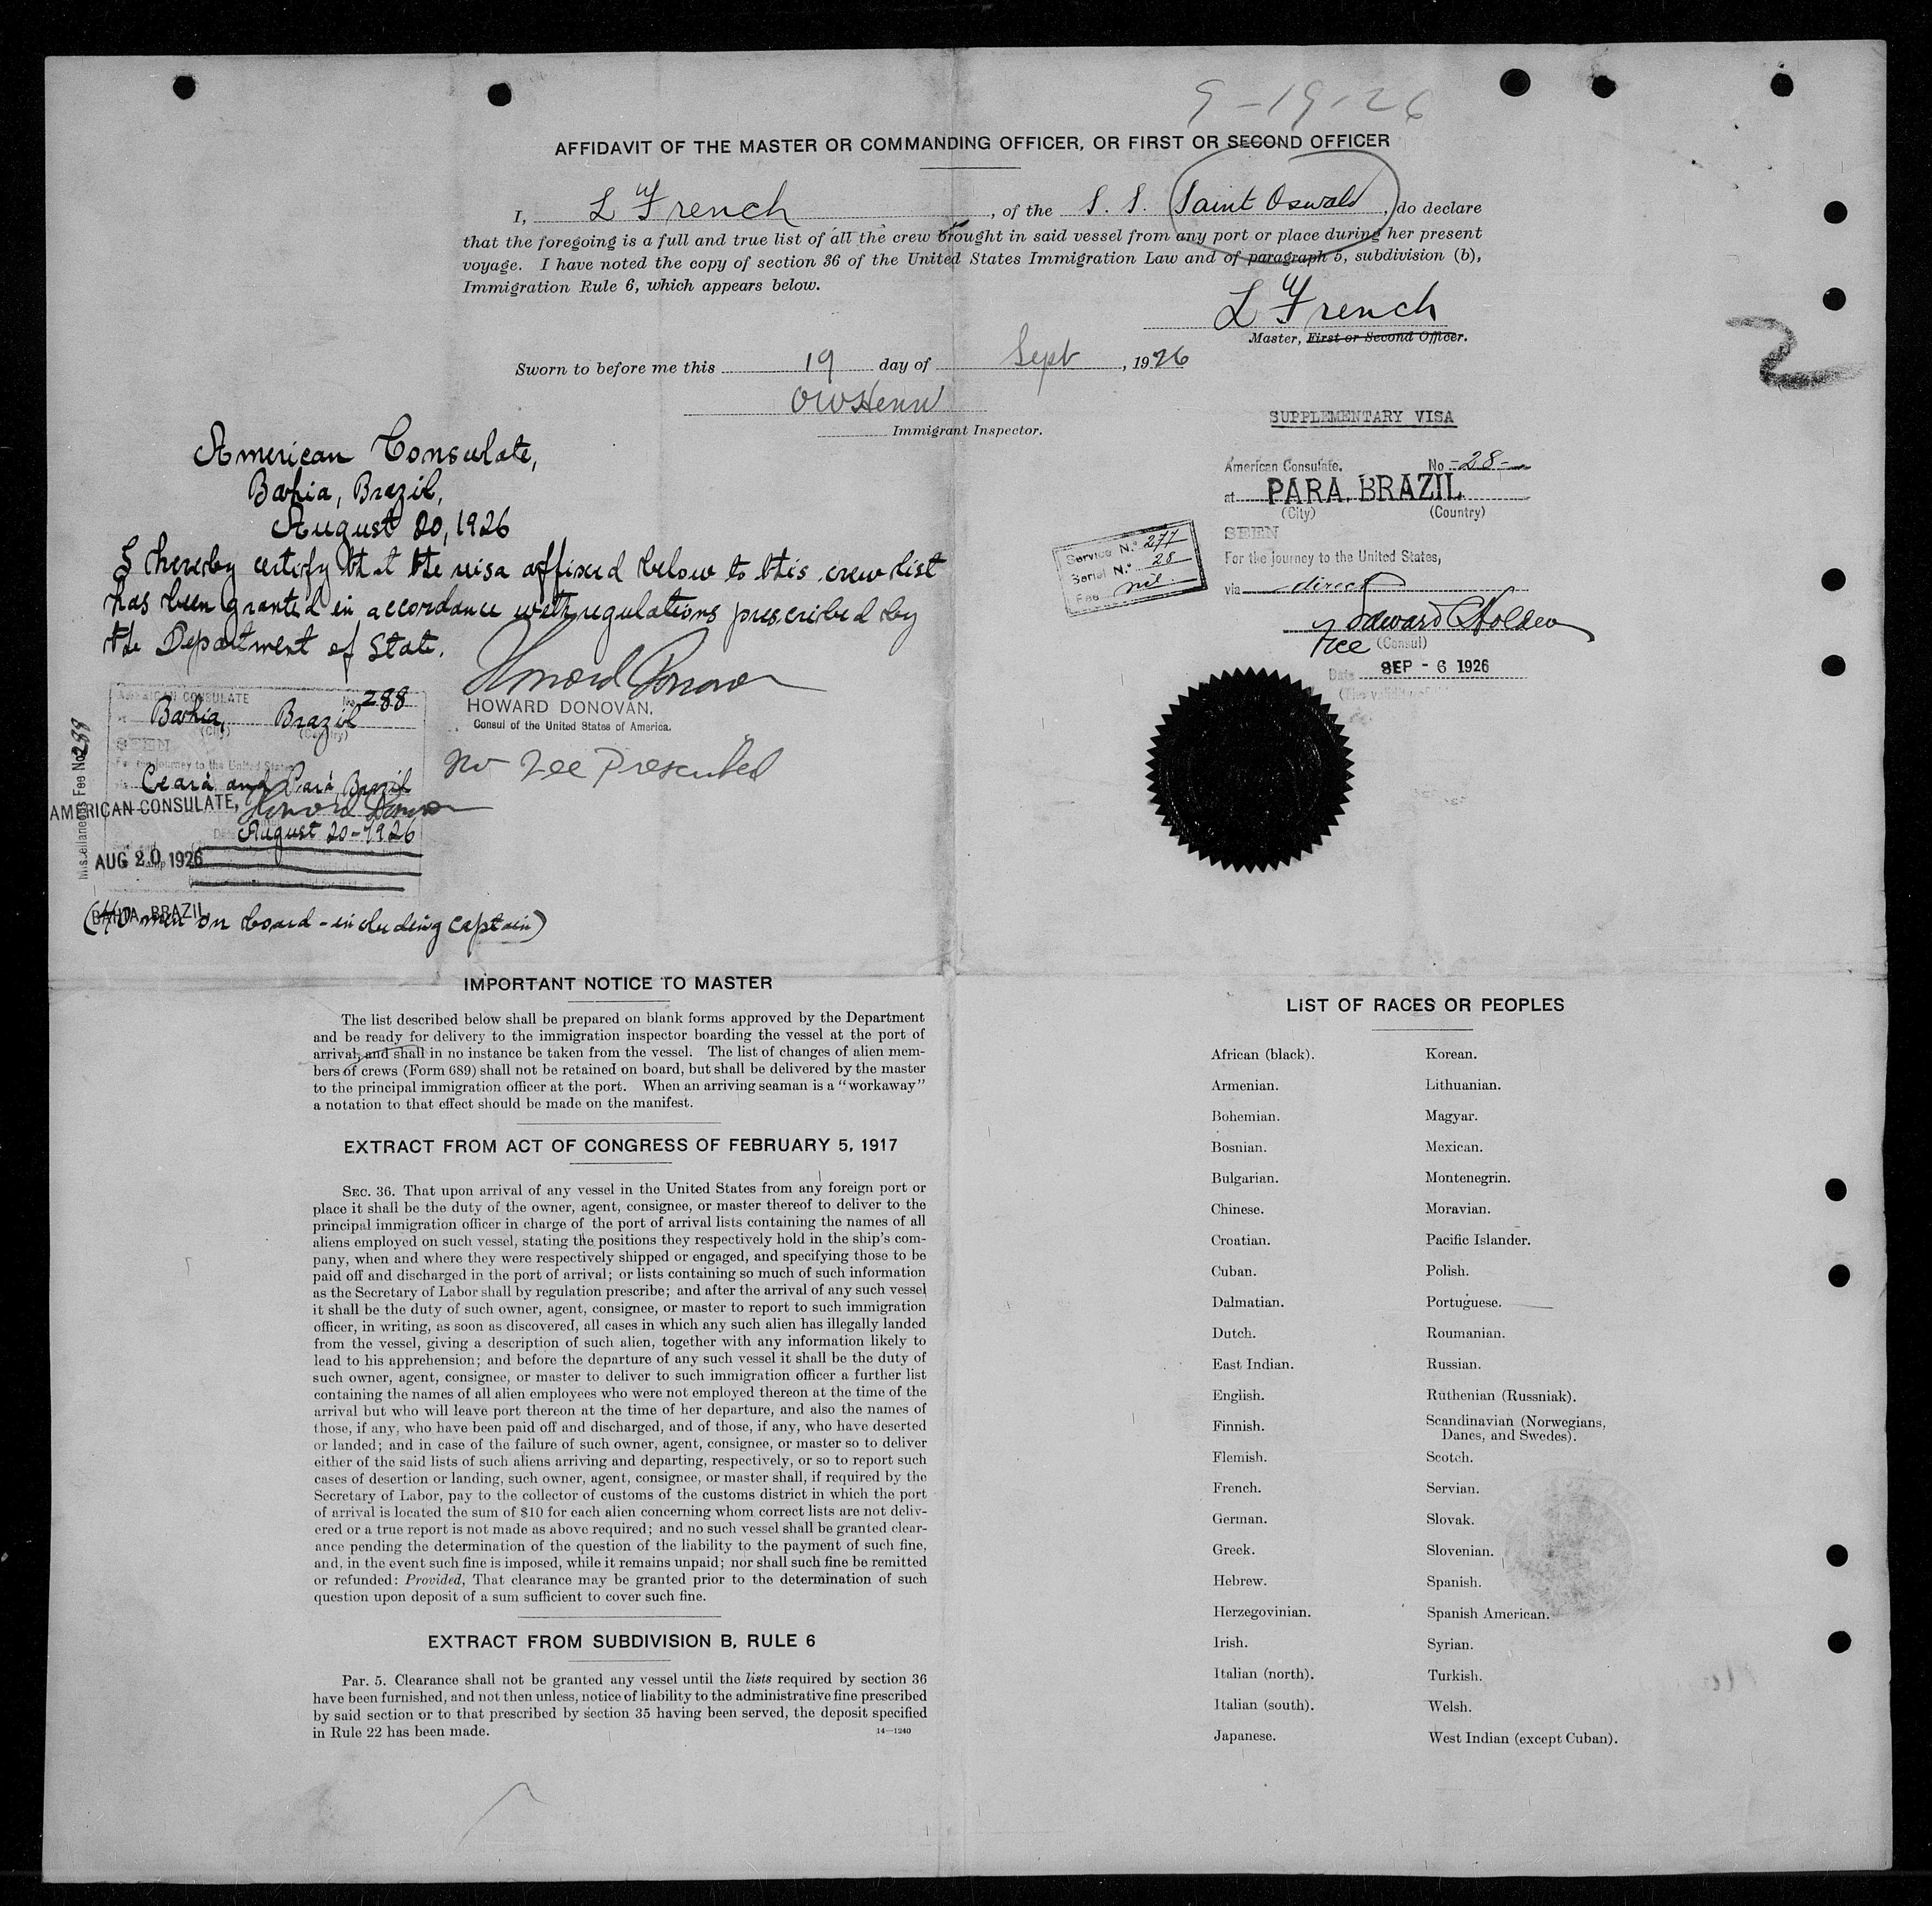 9-19-26
AFFIDAVIT OF THE MASTER OR COMMANDING OFFICER, OR FIRST OR SECOND OFFICER
I, L French, of the S. S. Saint Oswald, do declare
that the foregoing is a full and true list of all the crew brought in said vessel from any port or place during her present
voyage. I have noted the copy of section 36 of the United States Immigration Law and of paragraph 5, subdivision (b),
Immigration Rule 6, which appears below.
L French
Master, First or Second Officer.
2
Sworn to before me this 19 day of Sept, 1926
Immigrant Inspector.
American Consulate,
Bahia, Brazil,
August 20, 1926
I hereby certify that the visa affixed below to this crew list
has been granted in accordance with regulations prescribed by
the Department of State.
HOWARD DONOVAN.
Consul of the United States of America.
No Fee Prescribed
AMERICAN CONSULATE No 288
at Bahia, Brazil
(City) (Country)
SEEN
For the journey to the United States
via Ceará and Pará, Brazil
AMERICAN CONSULATE,
Howard Donovan
August 20-1926
AUG 20 1926
BAHIA, BRAZIL
Miscellaneous Fee No 288
(40 men on board - including captain)
SUPPLEMENTARY VISA
American Consulate. No -28-
at PARA, BRAZIL
(City) (Country)
SEEN
For the journey to the United States,
via direct
Edward C Holden
Vice (Consul)
Date SEP - 6 1926
(The validity of
Service N.º 277
Serial N.º 28
Fee nil.
IMPORTANT NOTICE TO MASTER
The list described below shall be prepared on blank forms approved by the Department
and be ready for delivery to the immigration inspector boarding the vessel at the port of
arrival, and shall in no instance be taken from the vessel. The list of changes of alien mem-
bers of crews (Form 689) shall not be retained on board, but shall be delivered by the master
to the principal immigration officer at the port. When an arriving seaman is a "workaway"
a notation to that effect should be made on the manifest.
EXTRACT FROM ACT OF CONGRESS OF FEBRUARY 5, 1917
SEC. 36. That upon arrival of any vessel in the United States from any foreign port or
place it shall be the duty of the owner, agent, consignee, or master thereof to deliver to the
principal immigration officer in charge of the port of arrival lists containing the names of all
aliens employed on such vessel, stating the positions they respectively hold in the ship's com-
pany, when and where they were respectively shipped or engaged, and specifying those to be
paid off and discharged in the port of arrival; or lists containing so much of such information
as the Secretary of Labor shall by regulation prescribe; and after the arrival of any such vessel
it shall be the duty of such owner, agent, consignee, or master to report to such immigration
officer, in writing, as soon as discovered, all cases in which any such alien has illegally landed
from the vessel, giving a description of such alien, together with any information likely to
lead to his apprehension; and before the departure of any such vessel it shall be the duty of
such owner, agent, consignee, or master to deliver to such immigration officer a further list
containing the names of all alien employees who were not employed thereon at the time of the
arrival but who will leave port thereon at the time of her departure, and also the names of
those, if any, who have been paid off and discharged, and of those, if any, who have deserted
or landed; and in case of the failure of such owner, agent, consignee, or master so to deliver
either of the said lists of such aliens arriving and departing, respectively, or so to report such
cases of desertion or landing, such owner, agent, consignee, or master shall, if required by the
Secretary of Labor, pay to the collector of customs of the customs district in which the port
of arrival is located the sum of $10 for each alien concerning whom correct lists are not deliv-
ered or a true report is not made as above required; and no such vessel shall be granted clear-
ance pending the determination of the question of the liability to the payment of such fine,
and, in the event such fine is imposed, while it remains unpaid; nor shall such fine be remitted
or refunded: Provided, That clearance may be granted prior to the determination of such
question upon deposit of a sum sufficient to cover such fine.
EXTRACT FROM SUBDIVISION B, RULE 6
Par. 5. Clearance shall not be granted any vessel until the lists required by section 36
have been furnished, and not then unless, notice of liability to the administrative fine prescribed
by said section or to that prescribed by section 35 having been served, the deposit specified
in Rule 22 has been made. 14—1240
LIST OF RACES OR PEOPLES
African (black). Korean.
Armenian. Lithuanian.
Bohemian. Magyar.
Bosnian. Mexican.
Bulgarian. Montenegrin.
Chinese. Moravian.
Croatian. Pacific Islander.
Cuban. Polish.
Dalmatian. Portuguese.
Dutch. Roumanian.
East Indian. Russian.
English. Ruthenian (Russniak).
Finnish. Scandinavian (Norwegians,
Danes, and Swedes).
Flemish. Scotch.
French. Servian.
German. Slovak.
Greek. Slovenian.
Hebrew. Spanish.
Herzegovinian. Spanish American.
Irish. Syrian.
Italian (north). Turkish.
Italian (south). Welsh.
Japanese. West Indian (except Cuban).